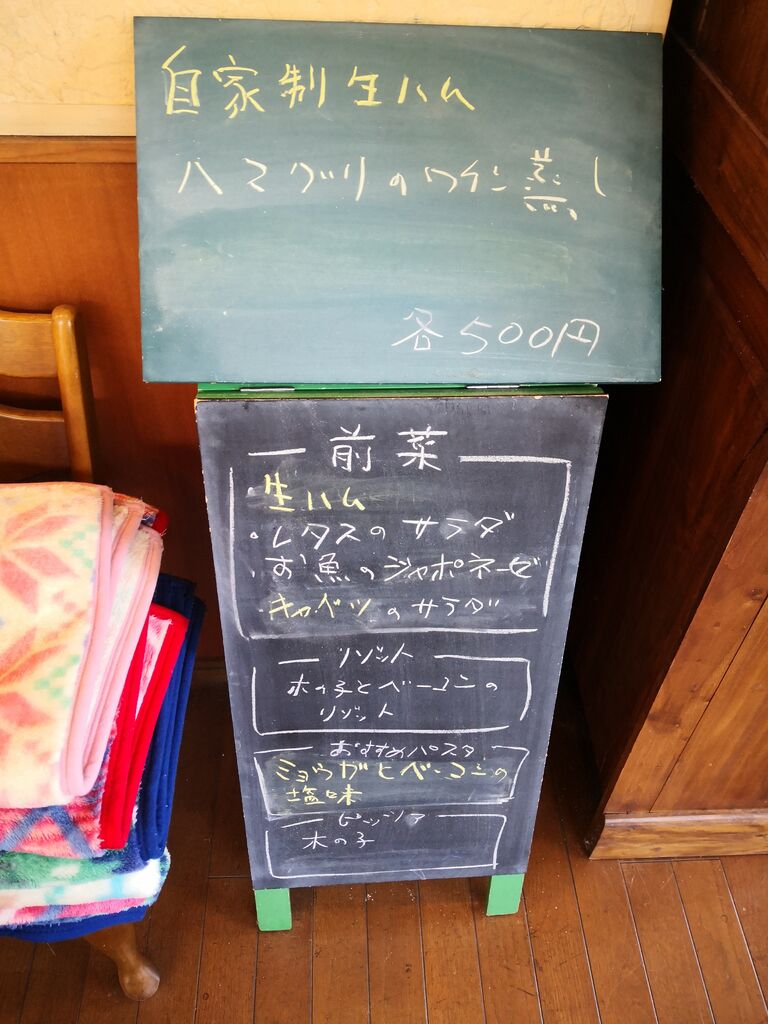 自家制生ハム
ハマグリのワイン蒸し
各500円
前菜
生ハム
・レタスのサラダ
・お魚のジャポネーゼ
・キャベツのサラダ
リゾット
木の子とベーコンの
リゾット
おすすめパスタ
ミョウガとベーコンの
塩味
ピッツァ
木の子